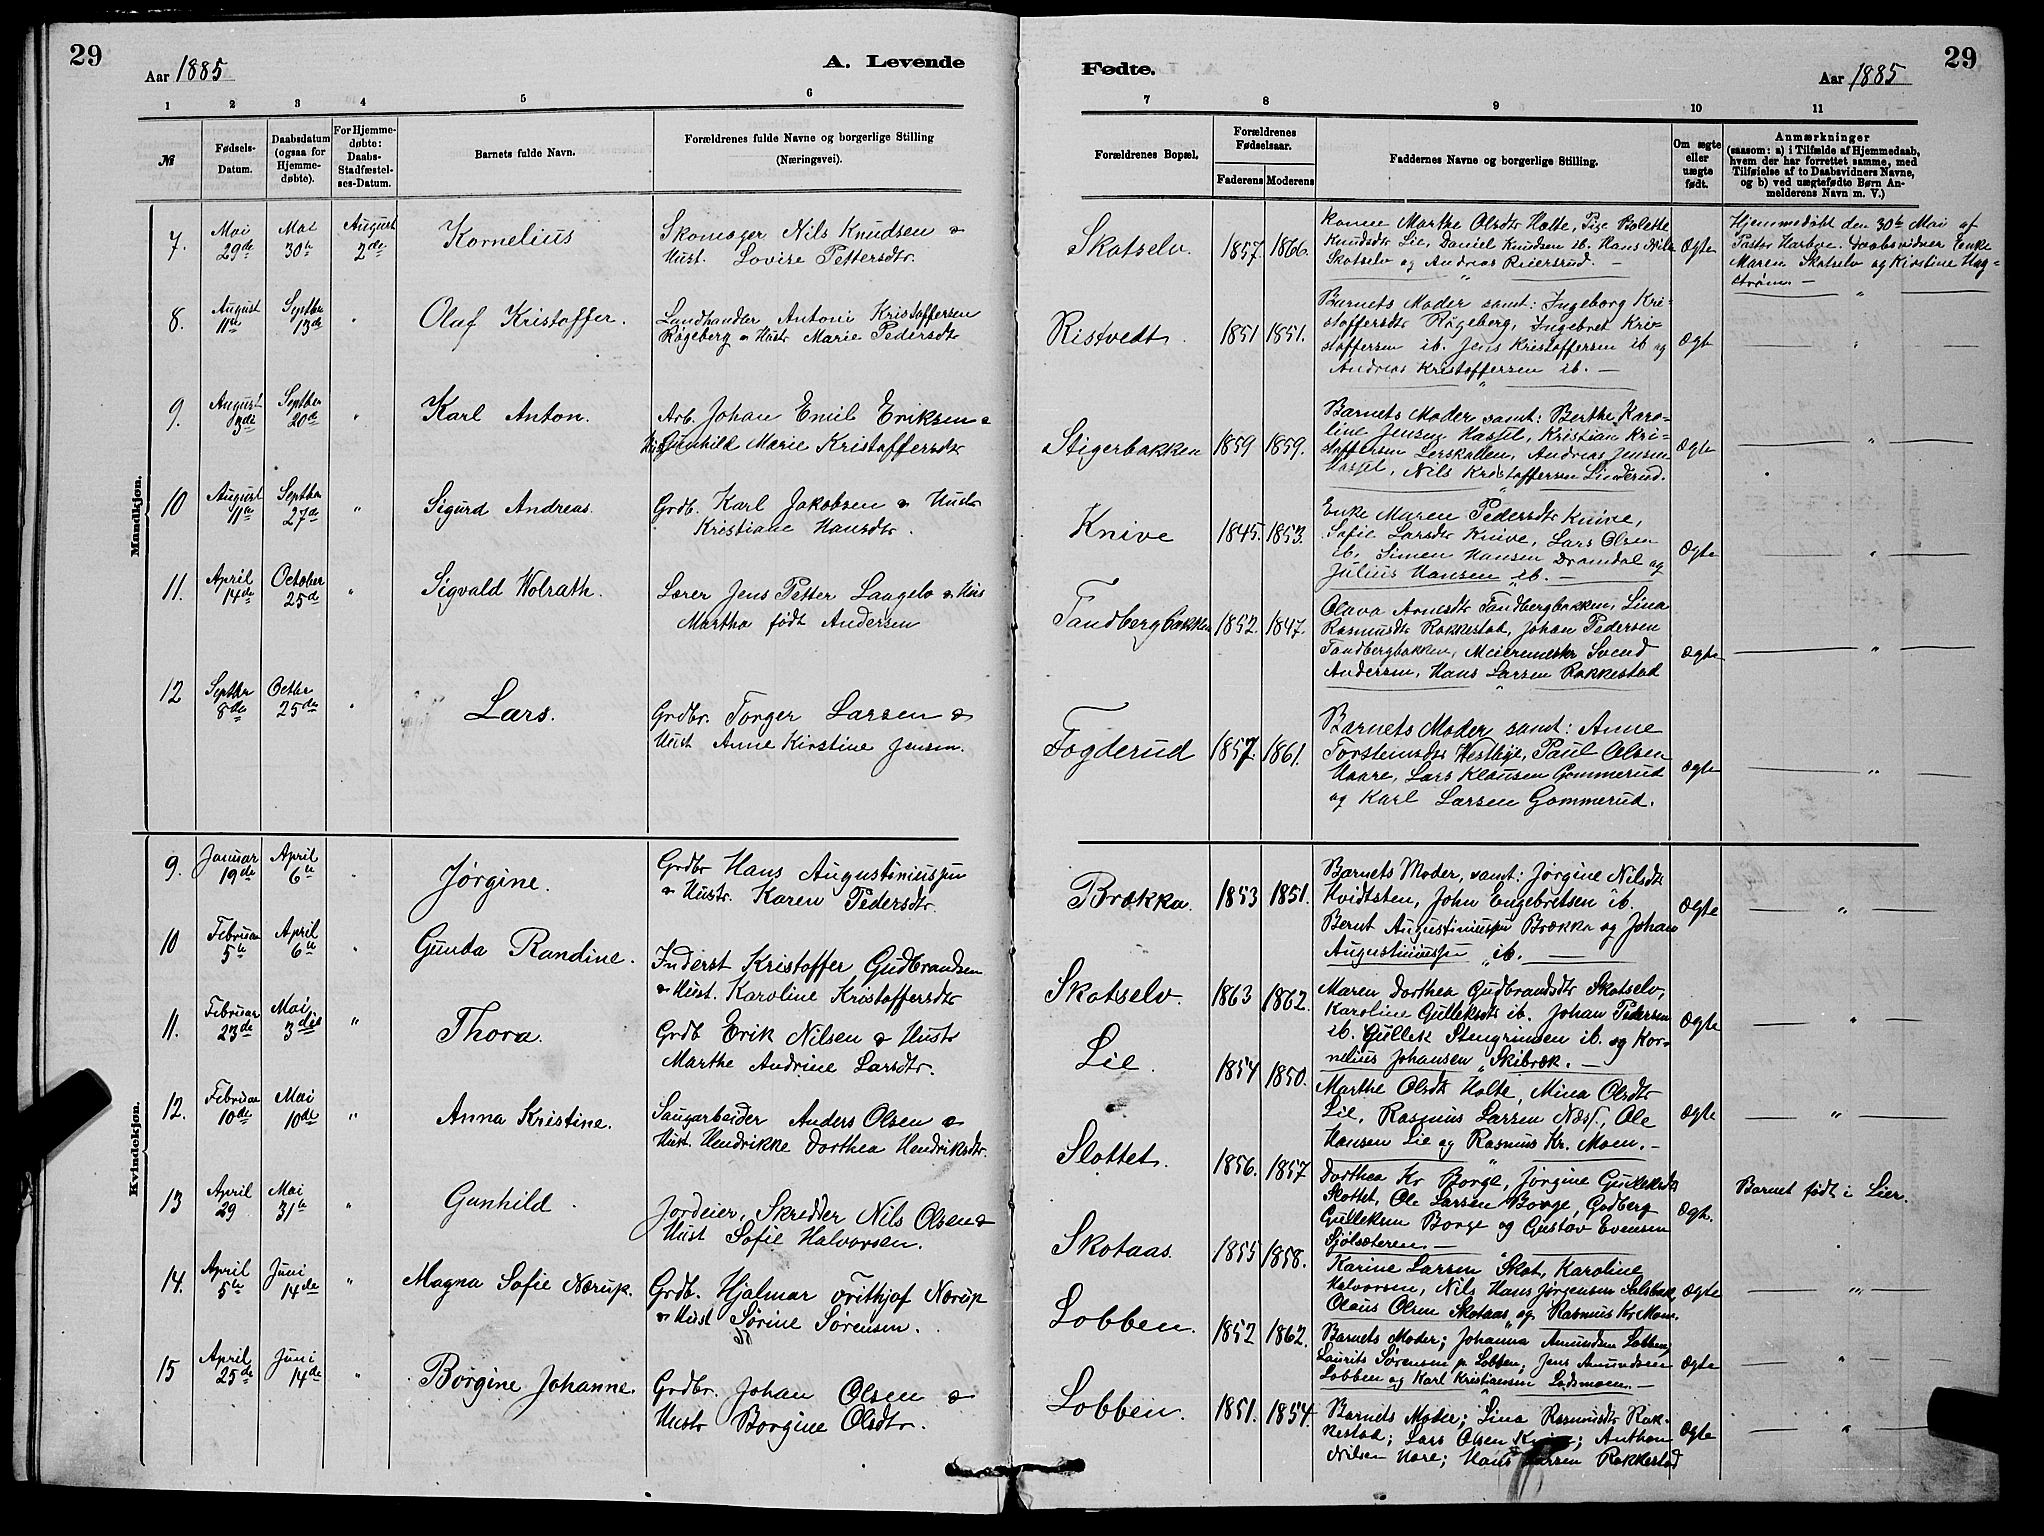 29
Aar 1885
A. Levende
1 2 3 4 5 6
№
Fødsels-
Datum.
Daabsdatum
(ogsaa for
Hjemme-
døbte).
For Hjemme-
døbte:
Daabs-
Stadfæstel-
ses-Datum.
Barnets fulde Navn.
Forældrenes fulde Navne og borgerlige Stilling
(Næringsvei).
Mandkjøn.
7. Mai 29de Mai 30te August 2de Kornelius
Skomager Nils Knudsen &
Hust. Lovise Pettersdtr.
8. August 11te Septbr 13de " Olaf Kristoffer.
Landhandler Antoni Kristoffersen
Røgeberg & Hustr Marie Pedersdtr
9. August 3de Septbr 20de " Karl Anton.
Arb. Johan Emil Eriksen &
Hust Gunhild Marie Kristoffersdtr
10 August 11te Septbr 27de " Sigurd Andreas.
Grdb. Karl Jakobsen & Hustr
Kristiane Hansdtr.
11. April 14de October 25de " Sigvald Wolrath.
Lærer Jens Petter Laagebo & Hus
Martha født Andersen
12 Septbr 8de Octbr 25de " Lars.
Grdbr. Torger Larsen &
Hust Anne Kirstine Jensen.
Kvindekjøn.
9. Januar 19de April 6te " Jørgine.
Grdbr Hans Augustiniussen
& Hustr. Karen Pedersdtr.
10 Februar 5te April 6te " Gunda Randine.
Inderst Kristoffer Gudbrandsen
& Hust. Karoline Kristoffersdtr
11. Februar 23de Mai 3die " Thora.
Grdb Erik Nilsen & Hustr
Marthe Andrine Larsdtr.
12. Februar 10de Mai 10de " Anna Kristine.
Saugarbeider Anders Olsen &
Hust. Hendrikke Dorthea Hendriksdtr.
13 April 29 Mai 31te " Gunhild.
Jordeier, Skredder Nils Olsen &
Hust Sofie Halvorsen.
14. April 5te Juni 14de " Magna Sofie Nærup.
Grdb. Hjalmar Frithjof Nærup
& Hust Sørine Sørensen.
15 April 25de Juni 14de " Borgine Johanne.
Grdbr. Johan Olsen &
Hustr Borgine Olsdtr.
Fødte.
Aar 1885
29
7 8 9 10 11
Forældrenes Bopæl.
Forældrenes
Fødselsaar.
Faderens Moderens
Faddernes Navne og borgerlige Stilling.
Om ægte
eller
uægte
født.
Anmærkninger
(saasom: a) i Tilfælde af Hjemmedaab,
hvem der har forrettet samme, med
Tilføielse af to Daabsvidners Navne,
og b) ved uægtefødte Børn An-
melderens Navn m. V.)
Skotselv. 1857. 1866.
Konen Marthe Olsdtr Holte, Pige Bolette
Knudsdtr Lie, Daniel Knudsen ib. Hans Nils
Skotselv og Andreas Reiersrud. —
Ægte
Hjemmedøbt den 30te Mai af
Pastor Harboe. Daabsvidner Enke
Maren Skotselv og Kirstine Hag-
strøm. —
Ristvedt. 1851 1851.
Barnets Moder samt: Ingeborg Kri-
stoffersdtr Røgeberg, Ingebret Kri-
stoffersen ib. Jens Kristoffersen ib og
Andreas Kristoffersen ib. —
Ægte
Stigerbakken 1859 1859.
Barnets Moder, samt: Berthe Karo-
line Jensen Hassel, Kristian Kri-
stoffersen Lerskallen, Andreas Jensen
Hassel, Nils Kristoffersen Linderud.
Ægte
Knive 1845. 1853.
Enke Maren Pedersdtr Knive,
Sofie Larsdtr Knive, Lars Olsen
ib. Simen Hansen Dramdal og
Julius Hansen ib. —
Ægte
Tandbergbakken 1852. 1847.
Olava Arnesdtr Tandbergbakken, Lina
Rasmusdtr Rakkestad, Johan Pedersen
Tandbergbakken, Meiermester Svend
Andersen, Hans Larsen Rakkestad
Ægte
Fogderud 1857. 1861.
Barnets Moder samt: Anne
Torstensdtr Westbye, Paul Olsen
Haare, Lars Klausen Gommerud
og Karl Larsen Gommerud.
Ægte
Brækka. 1853 1851.
Barnets Moder, samt: Jørgine Nilsdtr
Hvidtsten, John Engebretsen ib.
Bernt Augustiniussen Brækka og Johan
Augustiniussen ib. —
Ægte
Skotselv. 1863 1862.
Maren Dorthea Gudbrandsdtr Skotselv,
Karoline Gulleksdtr ib. Johan Pedersen
ib. Gullek Stengrimsen ib. og Kor-
nelius Johansen Skibræk. —
Ægte
Lie. 1854 1850.
Marthe Olsdtr Holte, Mina Olsdtr
Lie, Rasmus Larsen Næss, Ole
Hansen Lie og Rasmus Kr. Moen. —
Ægte
Slottet. 1856. 1857
Dorthea Kr Borge, Jørgine Gulleksdtr
Slottet, Ole Larsen Borge, Gudberg
Gulleksen Borge og Gustav Evensen
Sjølsæteren. —
Ægte.
Barnet født i Lier.
Skotaas. 1855 1858.
Karine Larsen Skot, Karoline
Halvorsen, Nils Hans Jørgensen
Olaus Olsen Skotaas og Rasmus Kr Moen.
Ægte
Lobben. 1852 1862.
Barnets Moder; Johanna Amundsen Lobben,
Laurits Sørensen p. Lobben; Jens Amundsen
Lobben og Karl Kristiansen Lodsmoen. —
Ægte
Lobben. 1851. 1854.
Barnets Moder; Lina Rasmusdtr Rak-
kestad; Lars Olsen Knive; Anthon
Nilsen Hore; Hans Larsen Rakkestad
Ægte